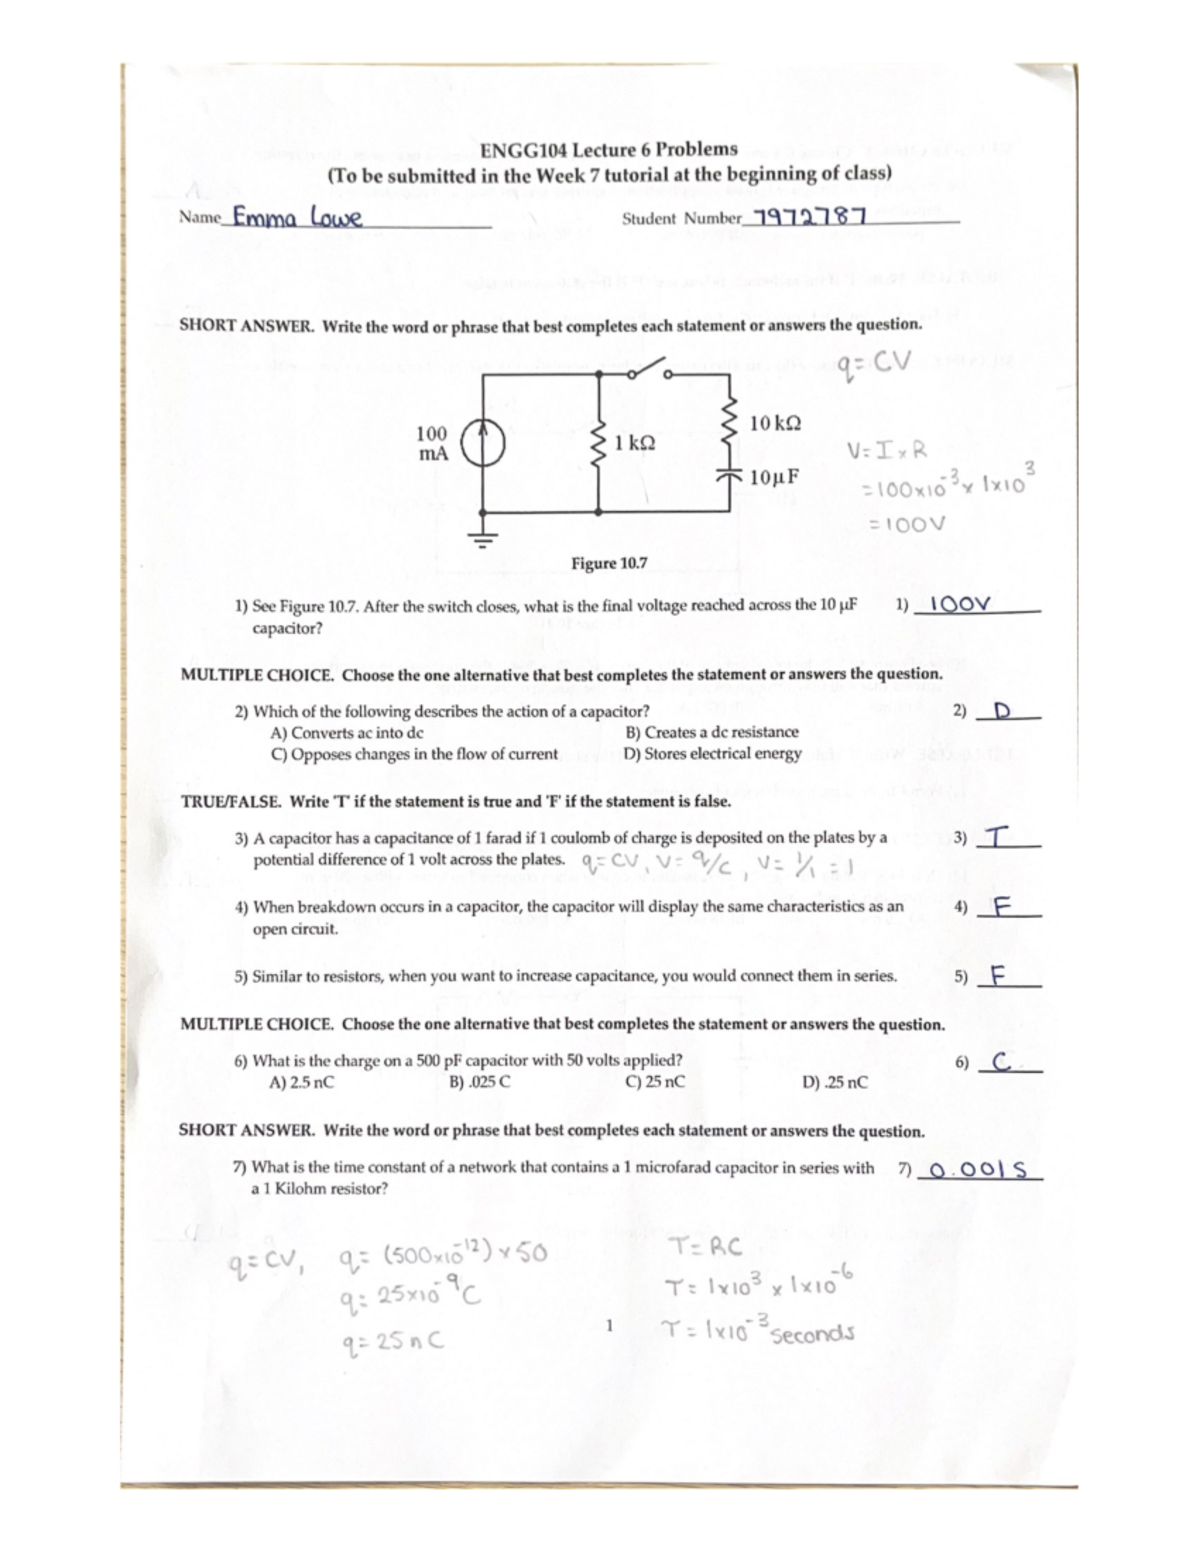 ENGG104 Lecture 6 Problems
(To be submitted in the Week 7 tutorial at the beginning of class)
Name Emma Lowe Student Number 7972787
SHORT ANSWER. Write the word or phrase that best completes each statement or answers the question.
q= CV
100 mA
1 kΩ
10 kΩ
10μF
V= I x R
= 100x10^-3 x 1x10^3
= 100V
Figure 10.7
1) See Figure 10.7. After the switch closes, what is the final voltage reached across the 10 μF 1) 100V
capacitor?
MULTIPLE CHOICE. Choose the one alternative that best completes the statement or answers the question.
2) Which of the following describes the action of a capacitor? 2) D
A) Converts ac into dc B) Creates a dc resistance
C) Opposes changes in the flow of current D) Stores electrical energy
TRUE/FALSE. Write 'T' if the statement is true and 'F' if the statement is false.
3) A capacitor has a capacitance of 1 farad if 1 coulomb of charge is deposited on the plates by a 3) T
potential difference of 1 volt across the plates. q= CV, V= q/c, V= 1/1 = 1
4) When breakdown occurs in a capacitor, the capacitor will display the same characteristics as an 4) F
open circuit.
5) Similar to resistors, when you want to increase capacitance, you would connect them in series. 5) F
MULTIPLE CHOICE. Choose the one alternative that best completes the statement or answers the question.
6) What is the charge on a 500 pF capacitor with 50 volts applied? 6) C
A) 2.5 nC B) .025 C C) 25 nC D) .25 nC
SHORT ANSWER. Write the word or phrase that best completes each statement or answers the question.
7) What is the time constant of a network that contains a 1 microfarad capacitor in series with 7) 0.001 S
a 1 Kilohm resistor?
q= CV, q= (500x10^-12) x 50 T= RC
q= 25x10^-9 C T= 1x10^3 x 1x10^-6
q= 25 nC T= 1x10^-3 seconds
1